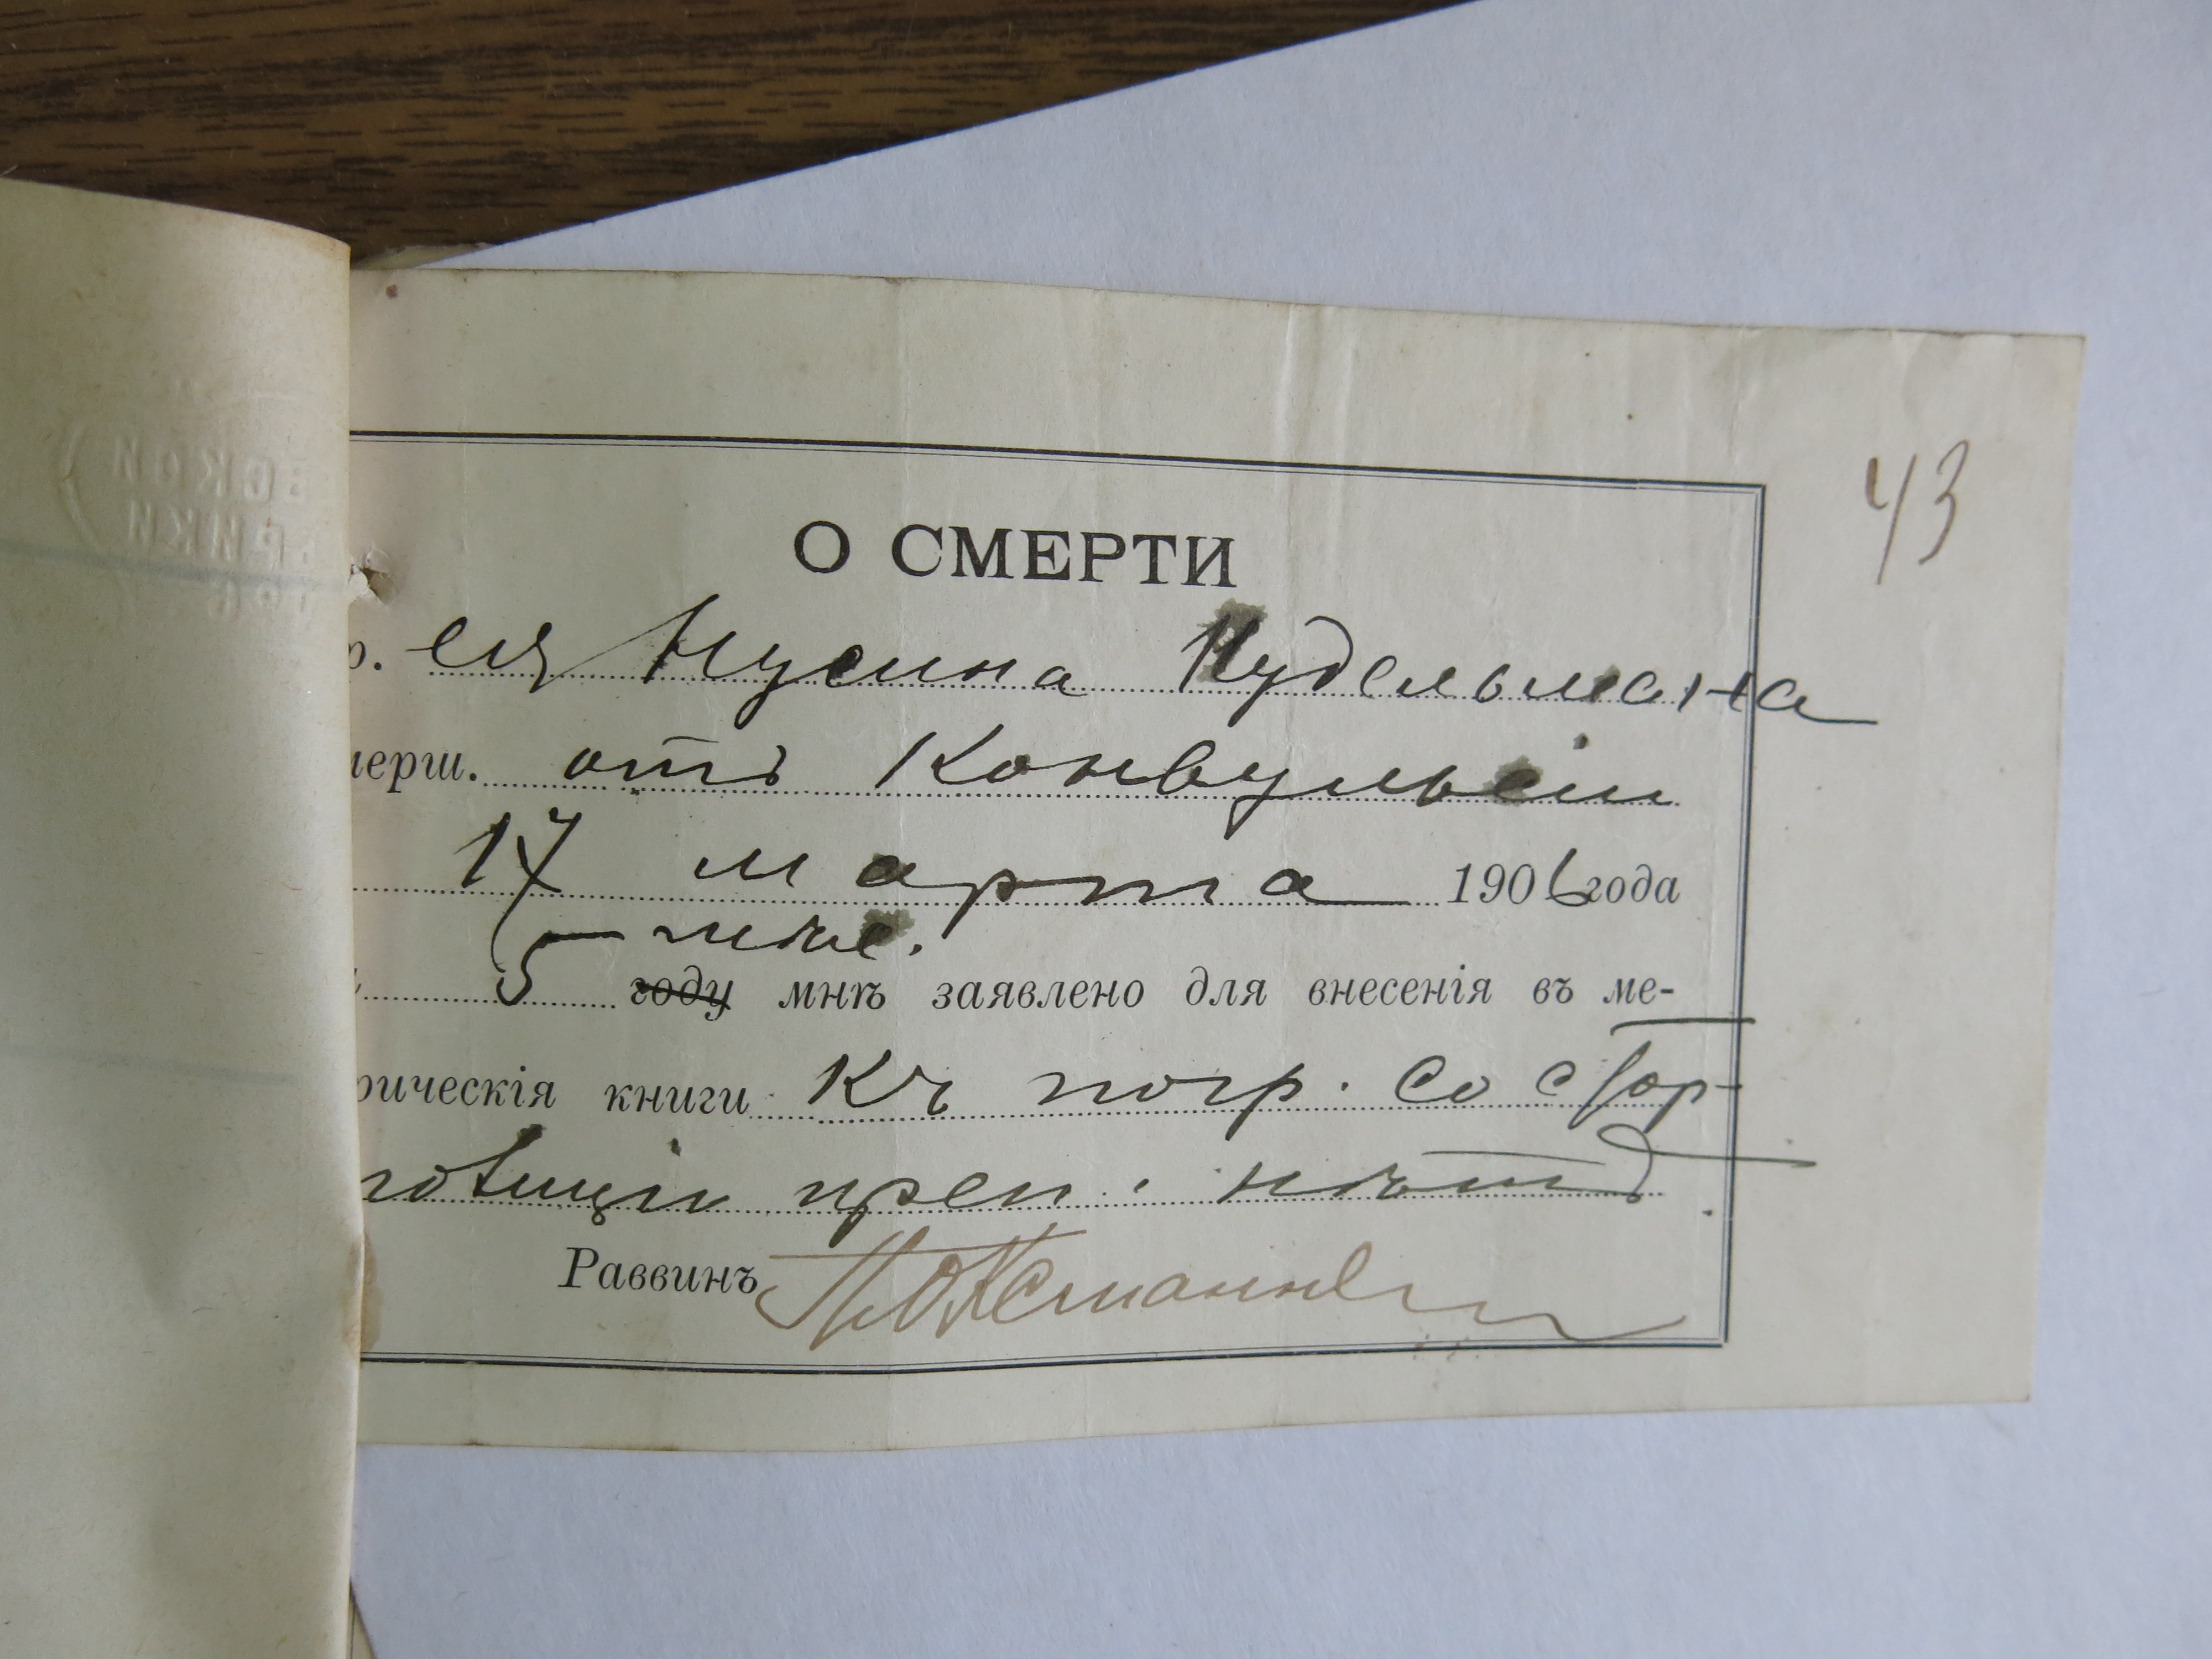 43
О СМЕРТИ
р. ея Нусина Нудельмана
мерш. отъ Конвульсіи
17 марта 1906 года
мѣс.
5 году мнѣ заявлено для внесенія въ ме-
рическія книги Къ погр. со ст
полиціи преп. нѣтъ.
Раввинъ